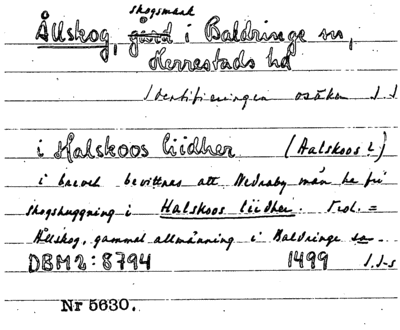 skogsmark
Ållskog, gård i Baldringe sn,
Herrestads hd
Identifieringen osäker J.S.
i Halskoos liidher (Aalskoos?)
i brevet bevittnas att Nedraby män ha fri
skogshuggning i Halskoos liidher. Trol. =
Ållskog, gammal allmänning i Baldringe sn.
DBM2:8794 1499 J.S-s
Nr 5630.